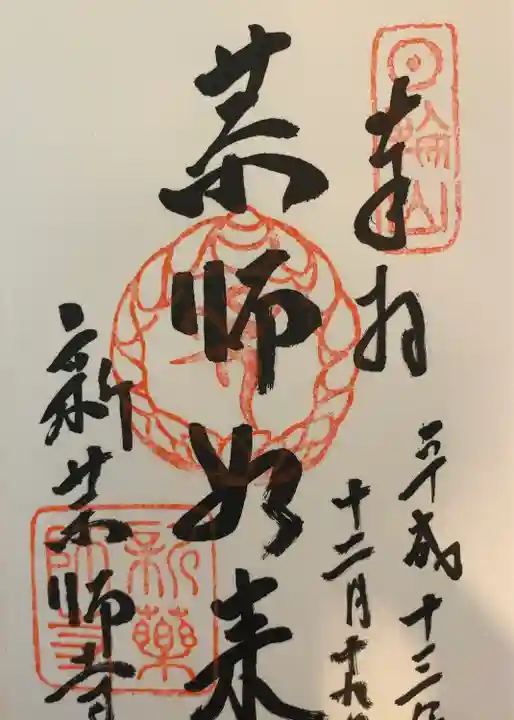 奉拝
平成十三年
十二月十九日
薬師如来
新薬師寺
日輪山
新薬
師寺